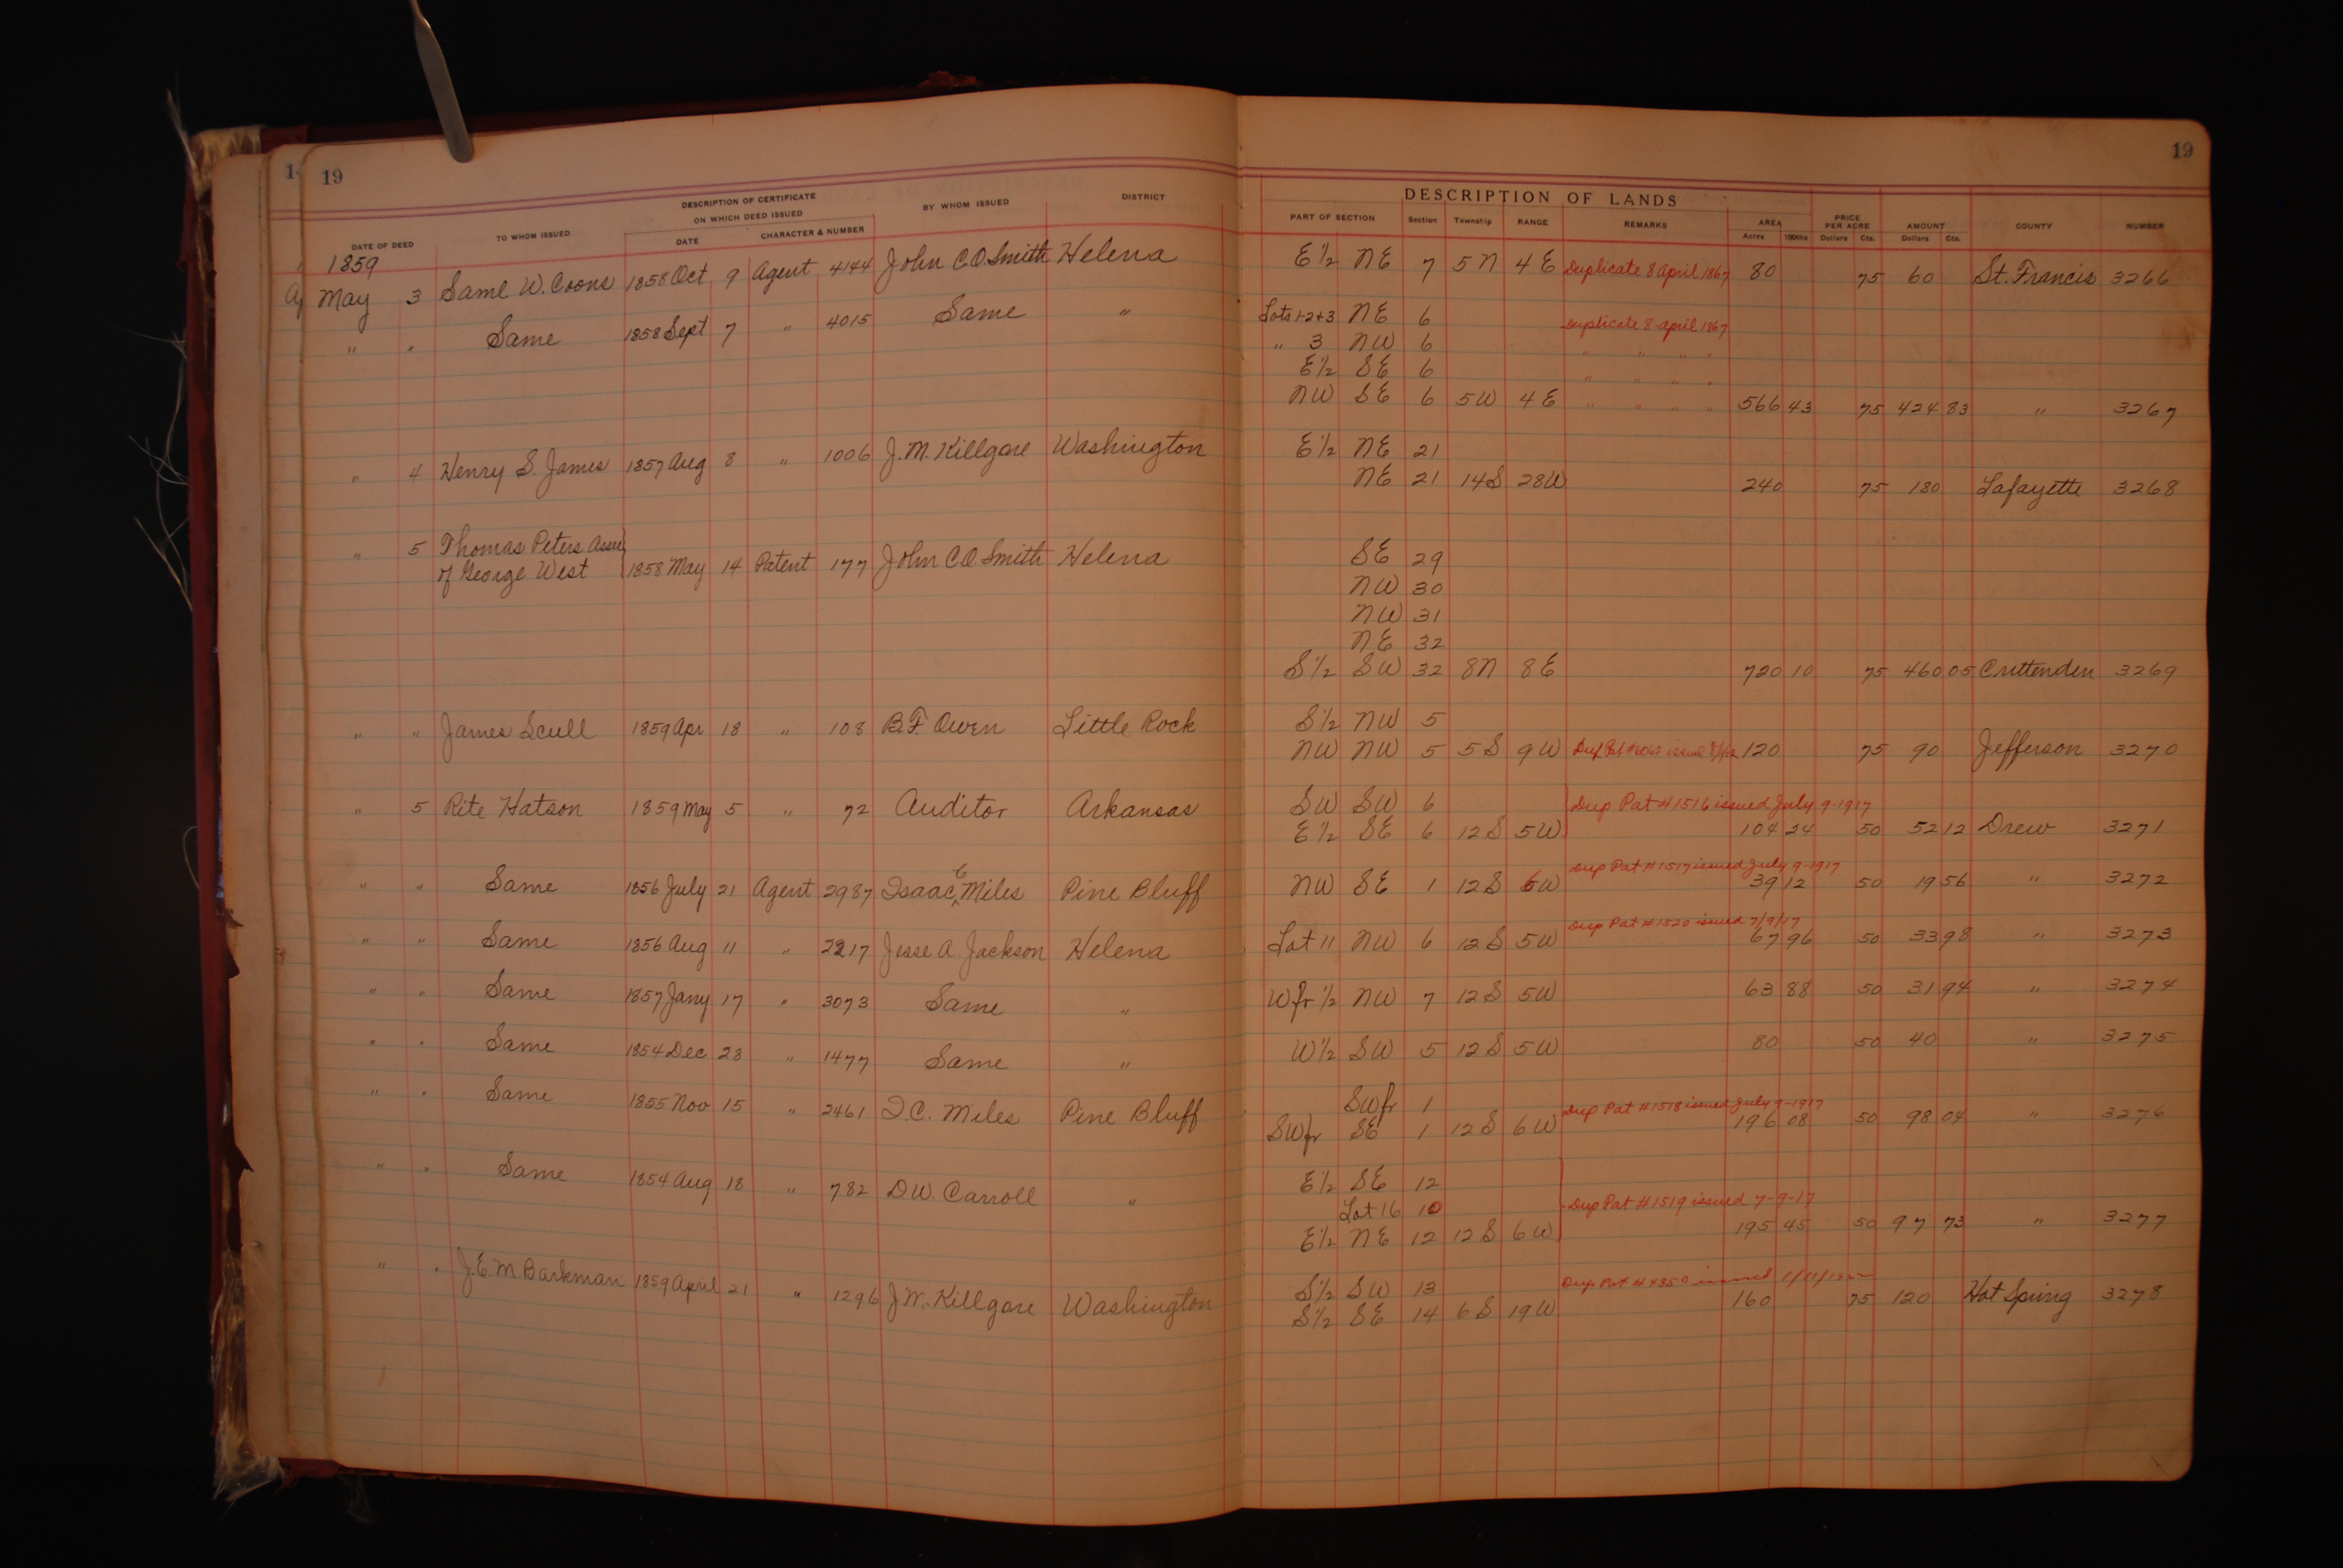 19 19
DESCRIPTION OF LANDS
DESCRIPTION OF CERTIFICATE
ON WHICH DEED ISSUED
DATE OF DEED TO WHOM ISSUED DATE CHARACTER & NUMBER BY WHOM ISSUED DISTRICT PART OF SECTION Section Township RANGE REMARKS AREA PRICE PER ACRE AMOUNT COUNTY NUMBER
Acres 100ths Dollars Cts. Dollars Cts.
1859
May 3 Saml W. Coons 1858 Oct 9 Agent 4144 John C.O. Smith Helena E 1/2 NE 7 5 N 4 E Duplicate 8 April 1867 80 75 60 St. Francis 3266
" " Same 1858 Sept 7 " 4015 Same " Lots 1-2+3 NE 6 Duplicate 8 April 1867
" 3 NW 6 " " " "
E 1/2 SE 6 " " " "
NW SE 6 5W 4 E " " " " 566 43 75 424 83 " 3267
" 4 Henry S. James 1857 Aug 8 " 1006 J. M. Killgore Washington E 1/2 NE 21
NE 21 14S 28W 240 75 180 Lafayette 3268
" 5 Thomas Peters Assee
of George West 1858 May 14 Patent 177 John C.O. Smith Helena SE 29
NW 30
NW 31
NE 32
S 1/2 SW 32 8N 8E 720 10 75 460 05 Crittenden 3269
" " James Scull 1859 Apr 18 " 108 B. F. Owen Little Rock S 1/2 NW 5
NW NW 5 5 S 9 W Dup Pat issued 120 75 90 Jefferson 3270
" 5 Rite Hatson 1859 May 5 " 72 Auditor Arkansas SW SW 6 Dup Pat #1516 issued July 9-1917
E 1/2 SE 6 12 S 5W 104 24 50 52 12 Drew 3271
" " Same 1856 July 21 Agent 2987 Isaac C Miles Pine Bluff NW SE 1 12 S 6W Dup Pat #1517 issued July 9-1917 39 12 50 19 56 " 3272
" " Same 1856 Aug 11 " 2217 Jesse A. Jackson Helena Lot 11 NW 6 12 S 5W Dup Pat #1520 issued 7/9/17 67 96 50 33 98 " 3273
" " Same 1857 Jany 17 " 3073 Same " W fr 1/2 NW 7 12 S 5W 63 88 50 31 94 " 3274
" " Same 1854 Dec 28 " 1477 Same " W 1/2 SW 5 12 S 5W 80 50 40 " 3275
" " Same 1855 Nov 15 " 2461 I.C. Miles Pine Bluff SW fr 1 Dup Pat #1518 issued July 9-1917
SW fr SE 1 12 S 6 W 196 08 50 98 04 " 3276
" " Same 1854 Aug 18 " 782 D.W. Carroll " E 1/2 SE 12
Lot 16 10 Dup Pat #1519 issued 7-9-17
E 1/2 NE 12 12 S 6 W 195 45 50 97 73 " 3277
" " J.E.M. Barkman 1859 April 21 " 1296 J.M. Killgore Washington S 1/2 SW 13 Dup Pat issued
S 1/2 SE 14 6 S 19 W 160 75 120 Hot Spring 3278